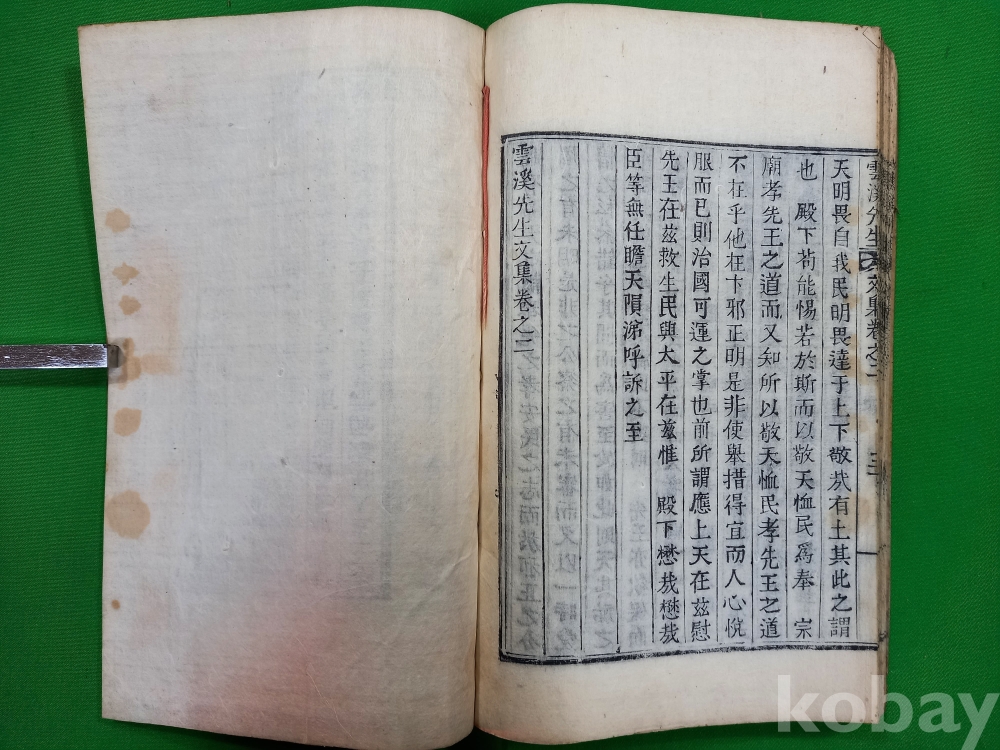 雲溪先生文集卷之二
天明畏自我民明畏達于上下敬㢤有土其此之謂
也 殿下苟能惕若於斯而以敬天恤民爲奉 宗
廟孝先王之道而又知所以敬天恤民孝先王之道
不在乎他在卞邪正明是非使舉措得宜而人心悅
服而已則治國可運之掌也前所謂應上天在茲慰
先王在茲救生民與太平在茲惟 殿下懋㢤懋㢤
臣等無任瞻天隕涕呼訴之至
雲溪先生文集卷之二
kobay